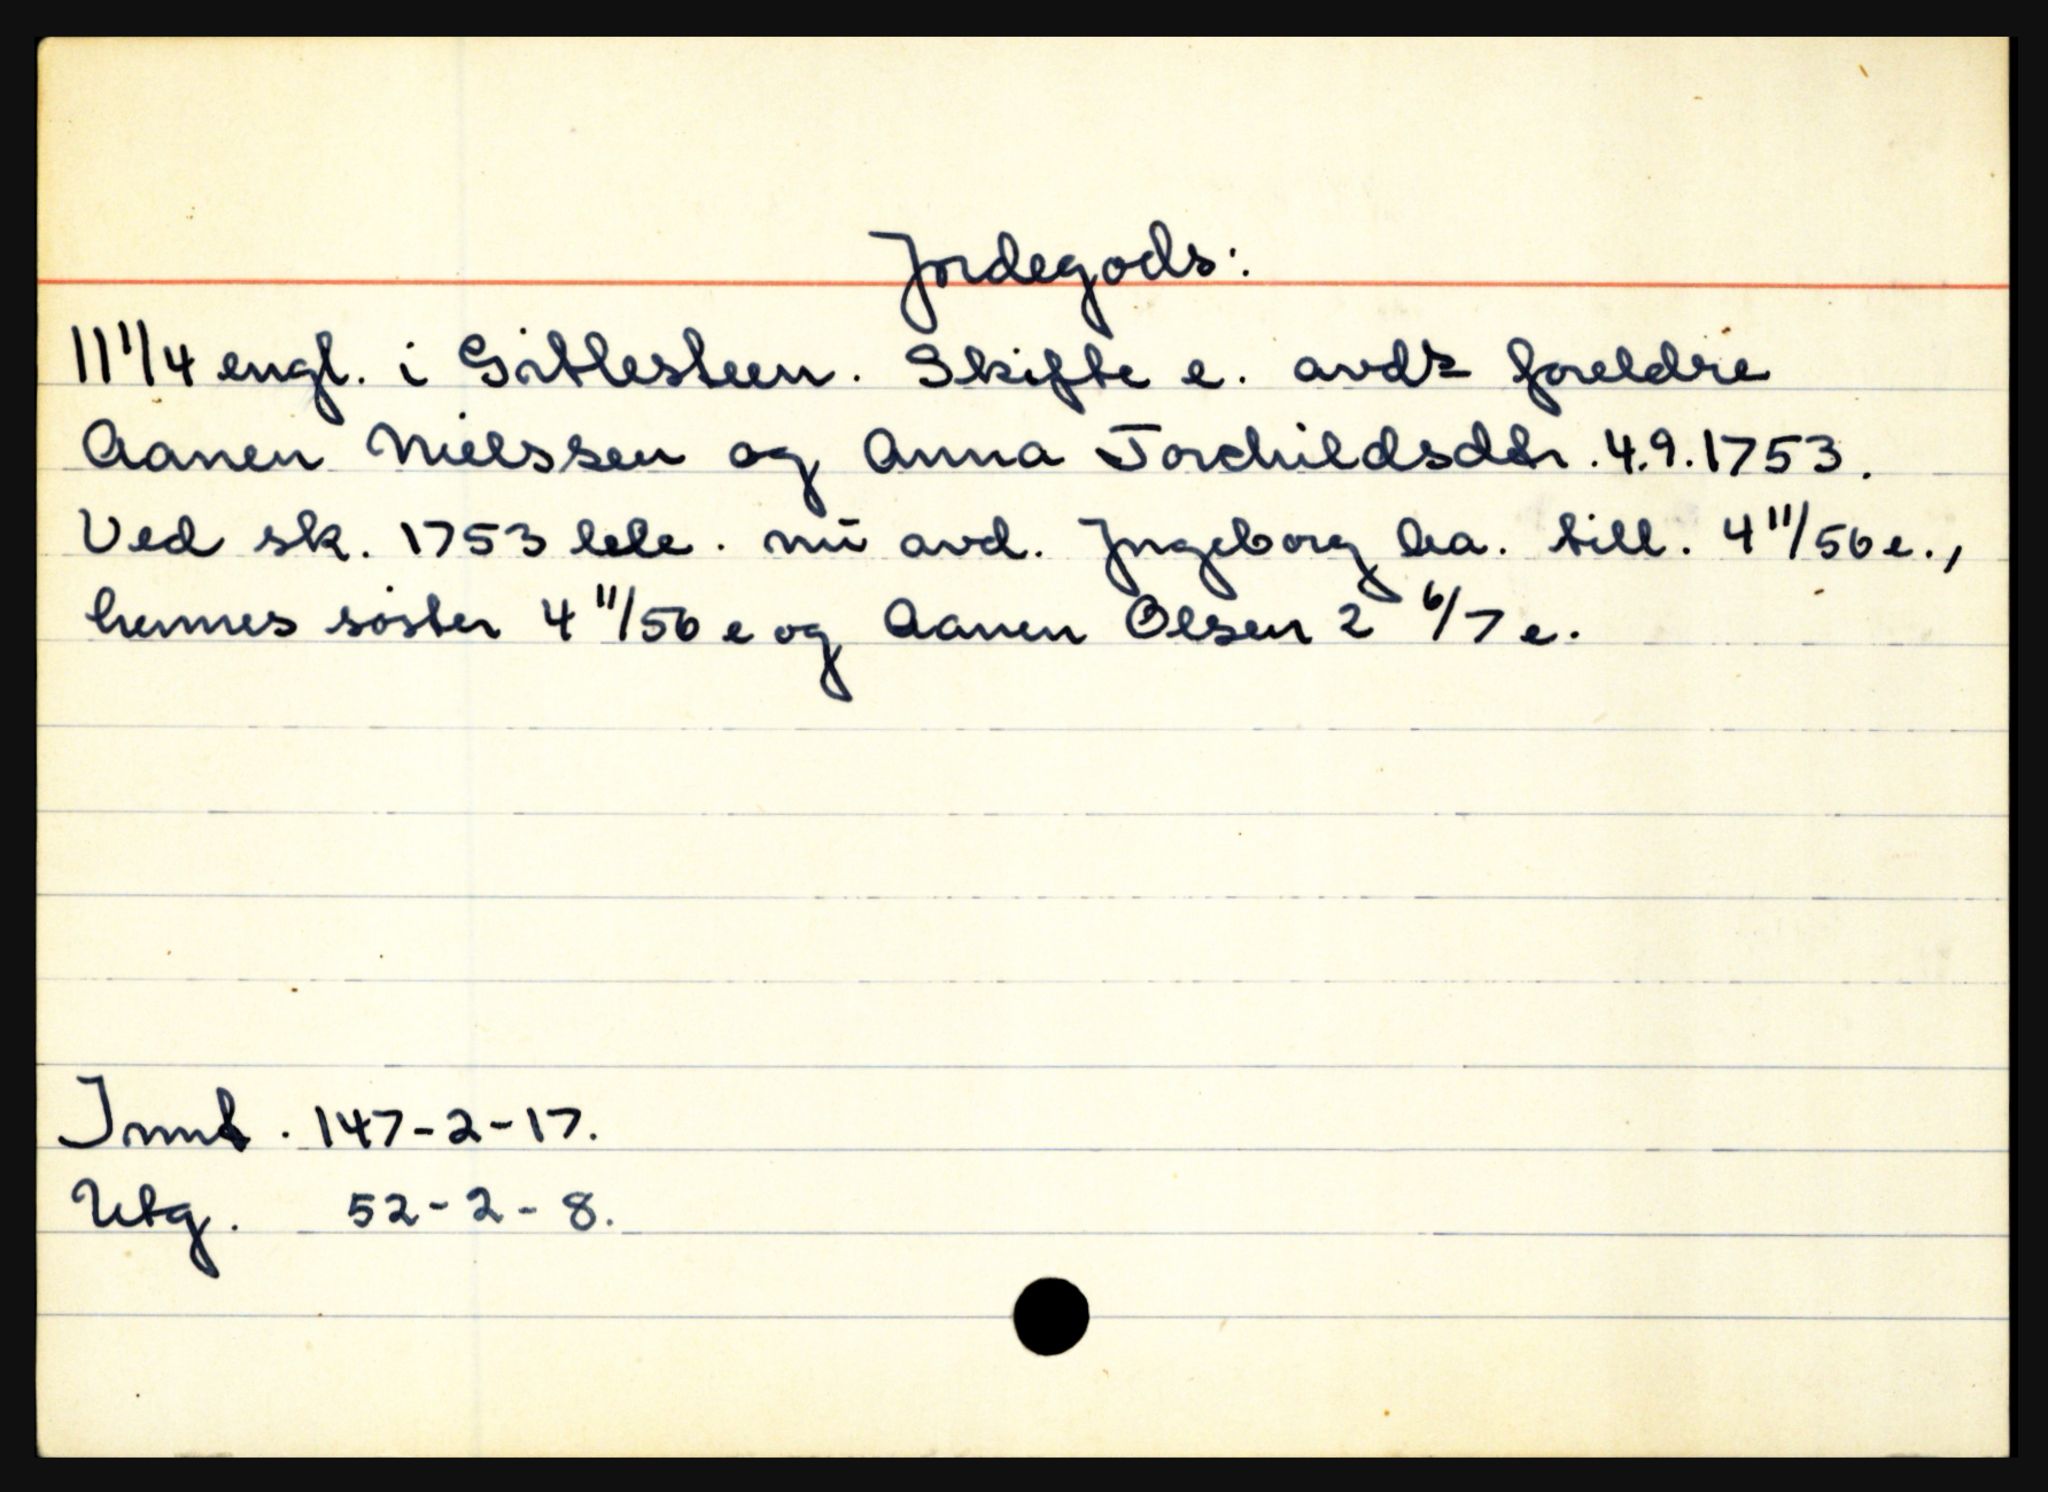 Jordegods:
11 1/4 engl. i Gitlesteen. Skifte e. avds foreldre
Aanen Nielssen og Anna Torchildsdtr. 4.9.1753.
Ved sk. 1753 ble nü avd. Ingeborg ha. till. 4 11/56 e.,
hennes søster 4 11/56 e og Aanen Olsen 2 6/7 e.
Innt. 147-2-17.
Utg. 52-2-8.